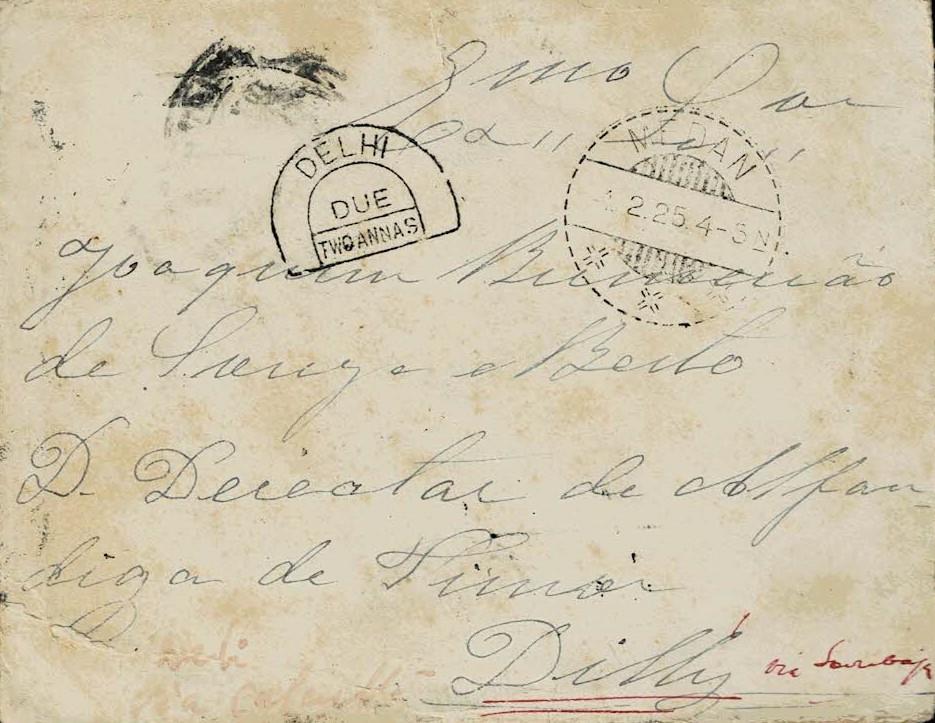 Exmo
DELHI
DUE
TWO ANNAS
MEDAN
2.25.4-5N
Joaquim
de Souza e Bello
D. Derector de Alfan
diga de Timor
Dilly via Sourabaja
via calcutta